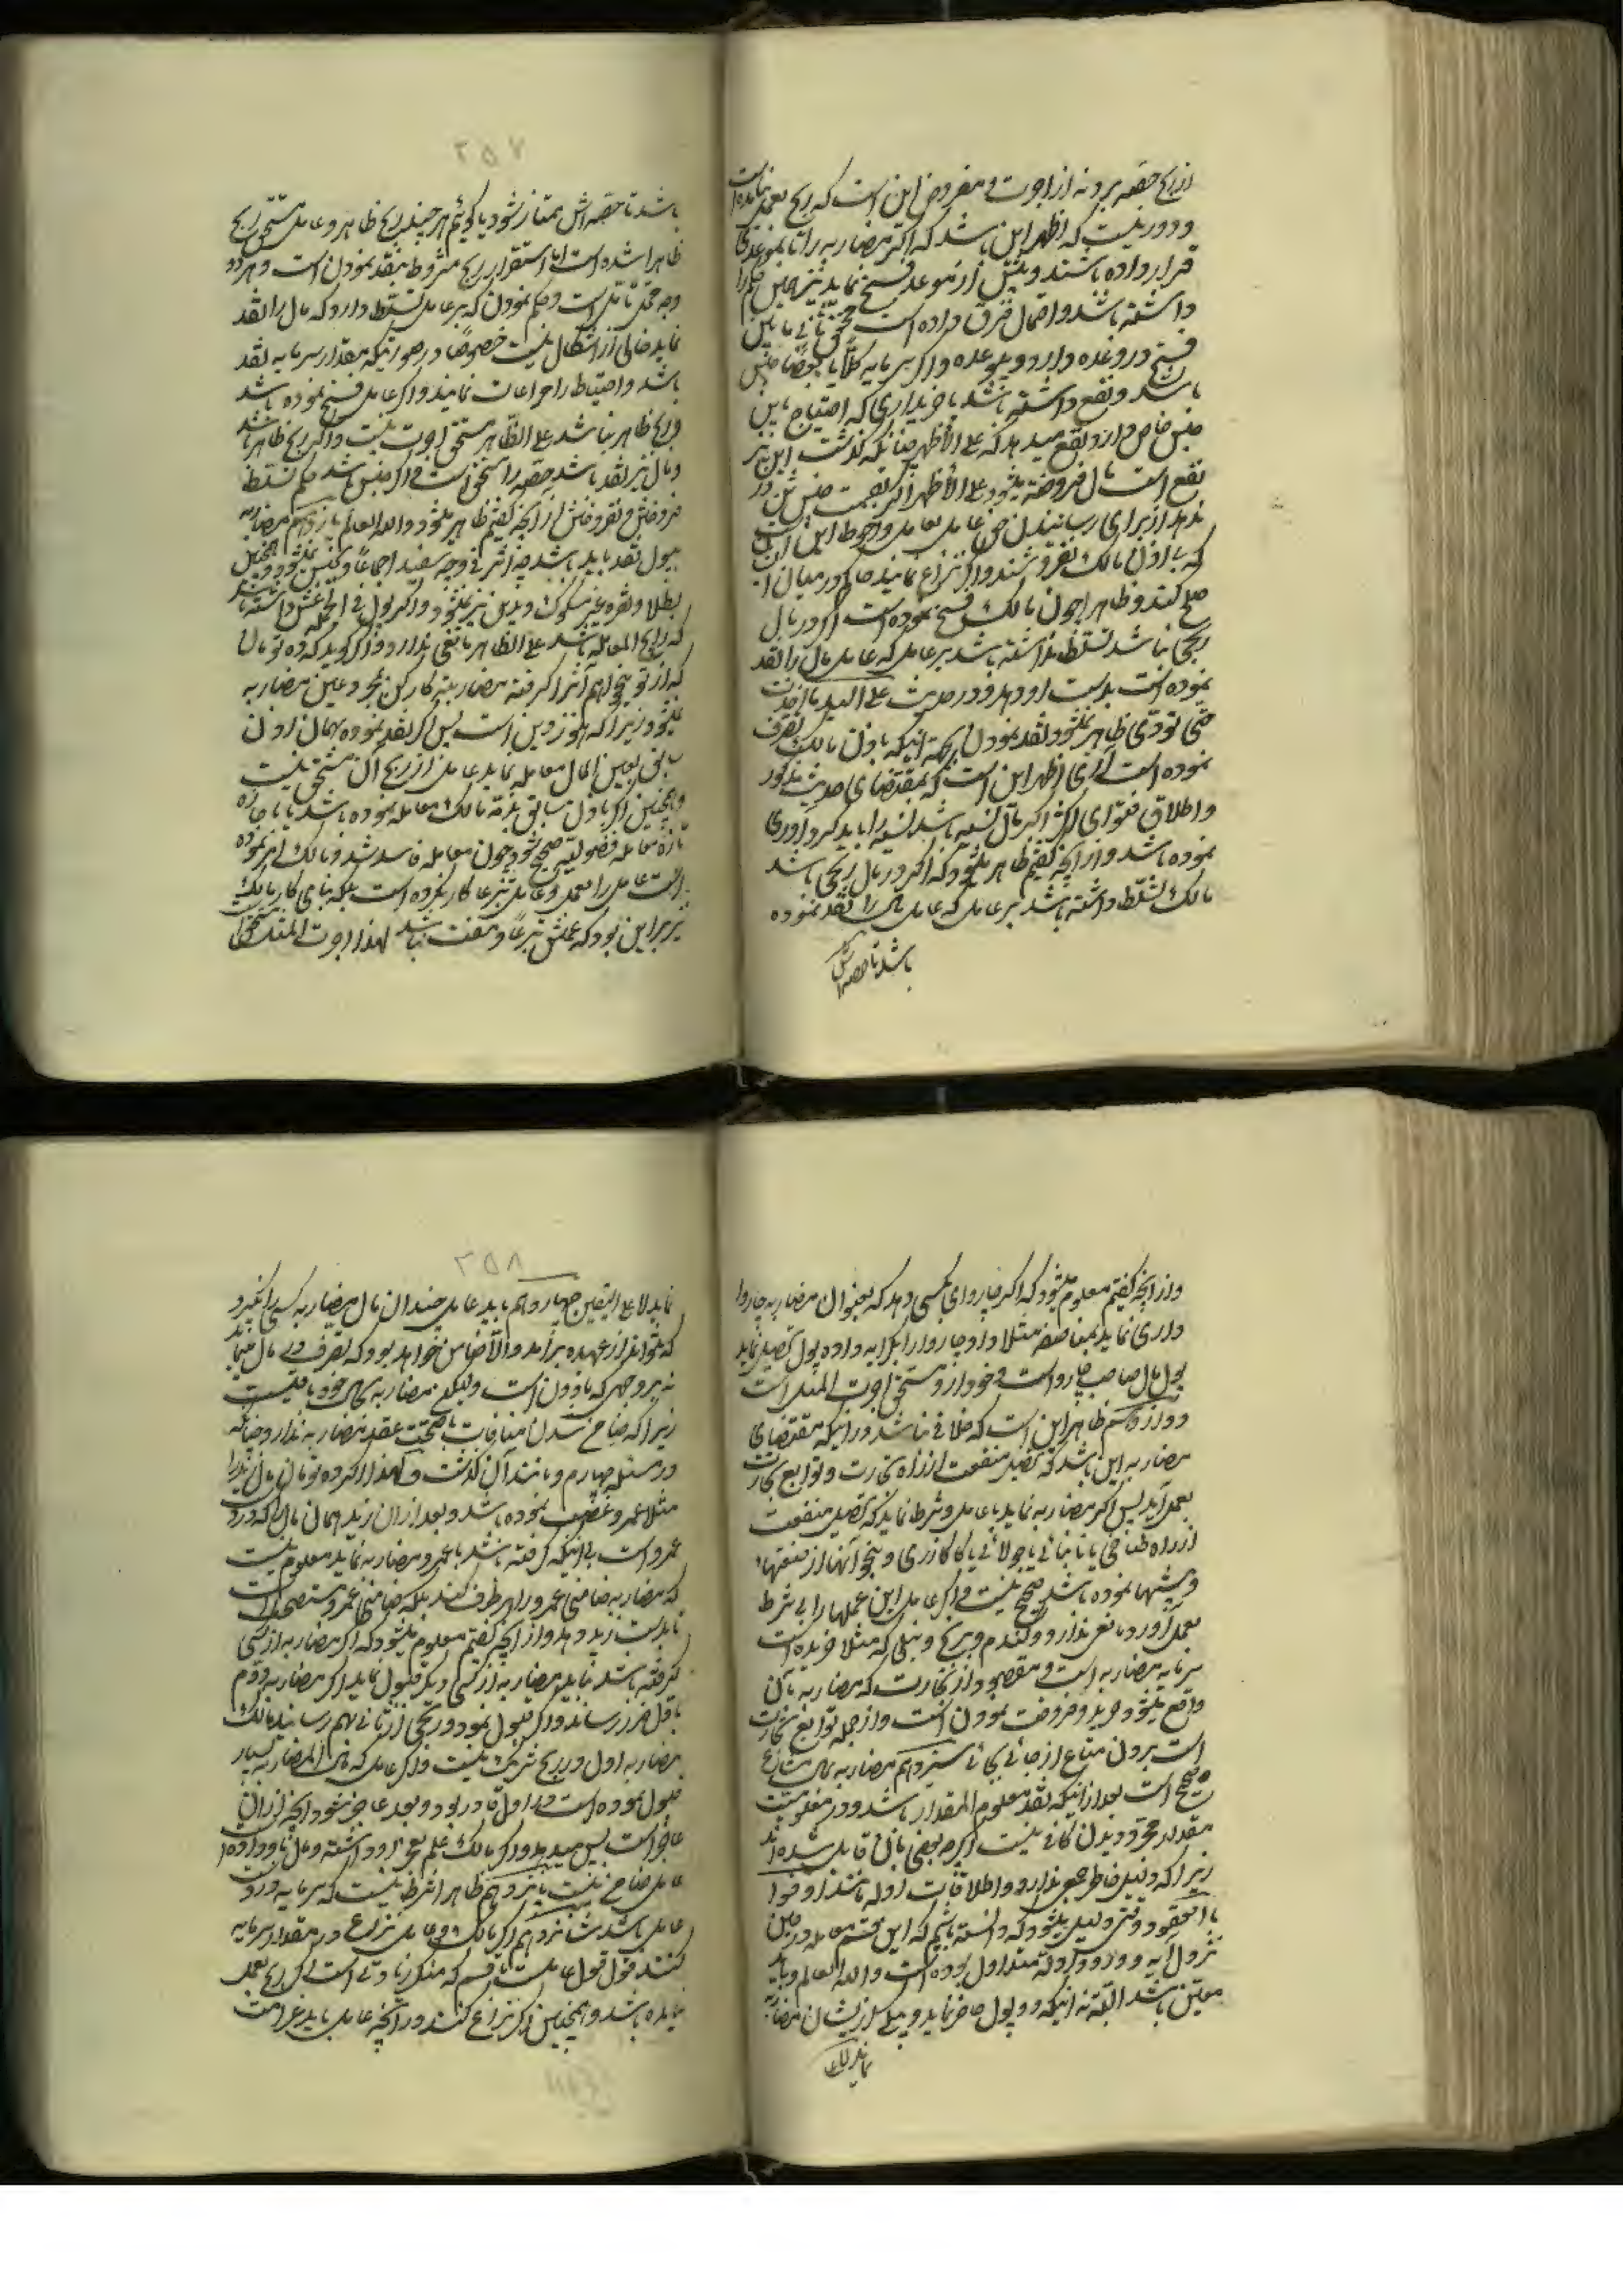 از ربح حصه برد نه از اجوت و مفروض این است که ربح بعمل نیامده است
و دور نیست که اظهر این باشد که اکر مضاربه را تا بموعدی
قرار داده باشند و پیش از موعد فسخ نماید نیز همین حکم را
داشته باشد و احتمال فرق داده است
فسخ در وعده دارد و بیوعده و اکر سرمایه کلاً یا بعضاً جنس
باشد و نفع داشته باشد یا خریداری که احتیاج باین
جنس خاص دارد نفع میدهد که علی الأظهر چنانکه کذشت این نیز
نفع است مال فروخته میشود علی الأظهر اکر بقیمت جنس تن در
ندهد از برای رسانیدن حق عامل بعامل و احوط این است
که باذن مالک بفروشند و اکر نزاع نمایند حاکم در میان
صلح کند و ظاهرا چون مالک فسخ نموده است اکر در مال
ربحی نباشد تسلط نداشته باشد بر عامل که عامل مال را نقد
نموده است بدست او دهد و در حدیث علی الید ما اخذت
حتی تودّی ظاهر نمیشود نقد نمودن بجهة اینکه باذن مالک تصرف
نموده است آری اظهر این است که بمقتضای حدیث مذکور
و اطلاق فتوای اکثر اکر مال نسیه باشد نسیه را باید کرداوری
نموده باشد و از آنچه کفتیم ظاهر میشود که اکر در مال ربحی باشد
مالک تسلّط داشته باشد بر عامل که عامل مال را نقد نموده
باشد تا حصه اش
۲۵۷
باشد تا حصه اش ممتاز شود یا کوئیم هر چند ربح ظاهر و عامل مستحق ربح
ظاهرا شده است امّا استقرار ربح مشروط بنقد نمودن است و هر دو
وجه محتمل است و حکم نمودن که بر عامل تسلّط دارد که مال را نقد
نماید خالی از اشکال نیست خصوصًا در صورتیکه بمقدار سرمایه نقد
باشد و احتیاط را مراعات نمایند و اکر عامل فسخ نموده باشد
و ربح ظاهر نباشد علی الظّاهر مستحق اجوت نیست و اکر ربح ظاهر باشد
و مال نیز نقد باشد حصّه را مستحق است و اکر جنس باشد حکم تسلط
فروختن و نفروختن از آنچه کفتیم ظاهر میشود و الله العالم یازدهم مضاربه
بپول نقد باید باشد چه اشرفی و چه سفید اجماعًا و بجنس نمیشود و همچنین
بطلا و نقره غیر مسکوک و بدین نیز نمیشود و اکر پول فی الجمله غش داشته باشد
که رایج المعامله باشد علی الظّاهر مانعی ندارد و اکر کوید که ده تومان
که از تو میخواهم آنرا کرفته مضاربة کار کن بمجرد همین مضاربه
نمیشود زیرا که هنوز دین است پس اکر نقد نموده بهمان اذن
سابق بعین المال معامله نماید عامل از ربح آن مستحق نیست
و همچنین اکر باذن سابق بذمّه مالک معامله نموده باشد یا باجازه
تازه معامله فضولیّه صحیح شود چون معامله فاسد شد و مالک امر نموده
است عامل را بعمل و عامل تبرعا کار نکرده است بلکه بنای کار مالک
نیز بر این بود که عملش تبرعاً و مفت نباشد لهذا اجوت المثل مستحق
و از آنچه کفتیم معلوم میشود که اکر چاروای بکسی دهد که بعنوان مضاربه چاروا
داری نماید بمناصفه مثلا و او چاروا را بکرایه داده پول تحصیل نماید
پول مال صاحب چاروا است و خود او مستحق اجوت المثل است
دوازدهم ظاهر این است که خلافی نباشد در اینکه مقتضای
مضاربه این باشد که تحصیل منفعت از راه تجارت و توابع تجارت
بعمل آید پس اکر مضاربه نماید با عامل و شرط نماید که تحصیل منفعت
از راه طباخی یا نانبائی یا جولائی یا کازری و نحو آنها از صنعتها
و پیشها نموده باشد صحیح نیست و اکر عامل این عملها را بی شرط
بعمل آورد مانعی ندارد و کندم و برنج و نیلی که مثلا خریده است
سرمایه مضاربه است و مقصود از تجارت که مضاربه بآن
واقع میشود خرید و فروخت نمودن است و از جمله توابع تجارت
است بردن متاع از جائی بجائی سیزدهم مضاربه بمال مشاع
صحیح است بعد از اینکه نقد معلوم المقدار باشد و در معلومیت
مقدار مجرد دیدن کافی نیست اکرچه بعضی بآن قایل شده اند
زیرا که دلیل خاطر جمعی ندارد و اطلاقات ادله مانند اوفوا
بالعقود وقتی دلیل میشود که دانسته باشیم که این قسم معامله در حین
نزول آیه و ورود ادله متداول بوده است و الله العالم و باید
معیّن باشد البتّه نه اینکه دو پول حاضر نماید و بیکی از ایشان مضاربه
نماید لا علی
۲۵۸
نماید لا علی التعیین چهاردهم باید عامل چندان مال مضاربه کسی را نکیرد
که نتواند از عهده بر آمد و الّا ضامن خواهد بود که تصرف در مال نماید
نه بر وجهی که ماذون است ولیکن مضاربه بحال خود باقیست
زیرا که ضامن شدن منافات با صحّت عقد مضاربه ندارد چنانکه
در مسئله چهارم و مانند آن کذشت و لهذا اکر ده تومان مال زید را
مثلا عمرو غصب نموده باشد و بعد از آن زید همان مال را که در ید
عمرو است بی اینکه کرفته باشد با عمرو مضاربه نماید معلوم نیست
که مضاربه ضامنی عمرو را بر طرف کند بلکه ضامنی عمرو مستصحب است
تا بدست زید دهد و از آنچه کفتیم معلوم میشود که اکر مضاربه از کسی
کرفته باشد نباید مضاربه از کسی دیکر قبول نماید اکر مضاربه دوّم
باوّل ضرر رساند و اکر قبول نمود و ربحی از ثانی بهم رسانید مالک
مضاربه اول در ربح شریک نیست و اکر عامل که مال المضاربه بسیار
قبول نموده است در اول قادر بود و بعد عاجز شود آنچه از آن
عاجز است پس میدهد و اکر مالک علم بعجز او داشته و مال باو داده
عامل ضامن نیست پانزدهم ظاهرا شرط نیست که سرمایه در دست
عامل باشد شانزدهم اکر مالک و عامل نزاع در مقدار سرمایه
کنند قول قول عامل است با قسم که منکر زیادتی است اکر ربح بعمل
نیامده باشد و همچنین اکر نزاع کنند در آنچه عامل باید غرامت